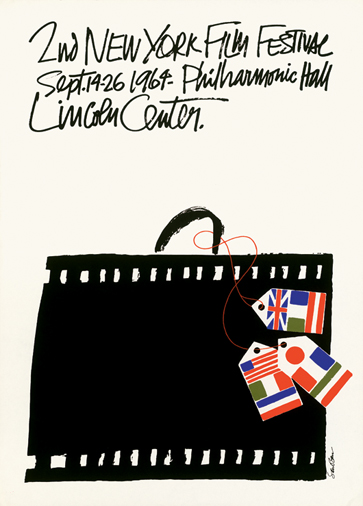 2nd NEW YORK FILM FESTIVAL
Sept. 14-26 1964 - Philharmonic Hall
Lincoln Center.